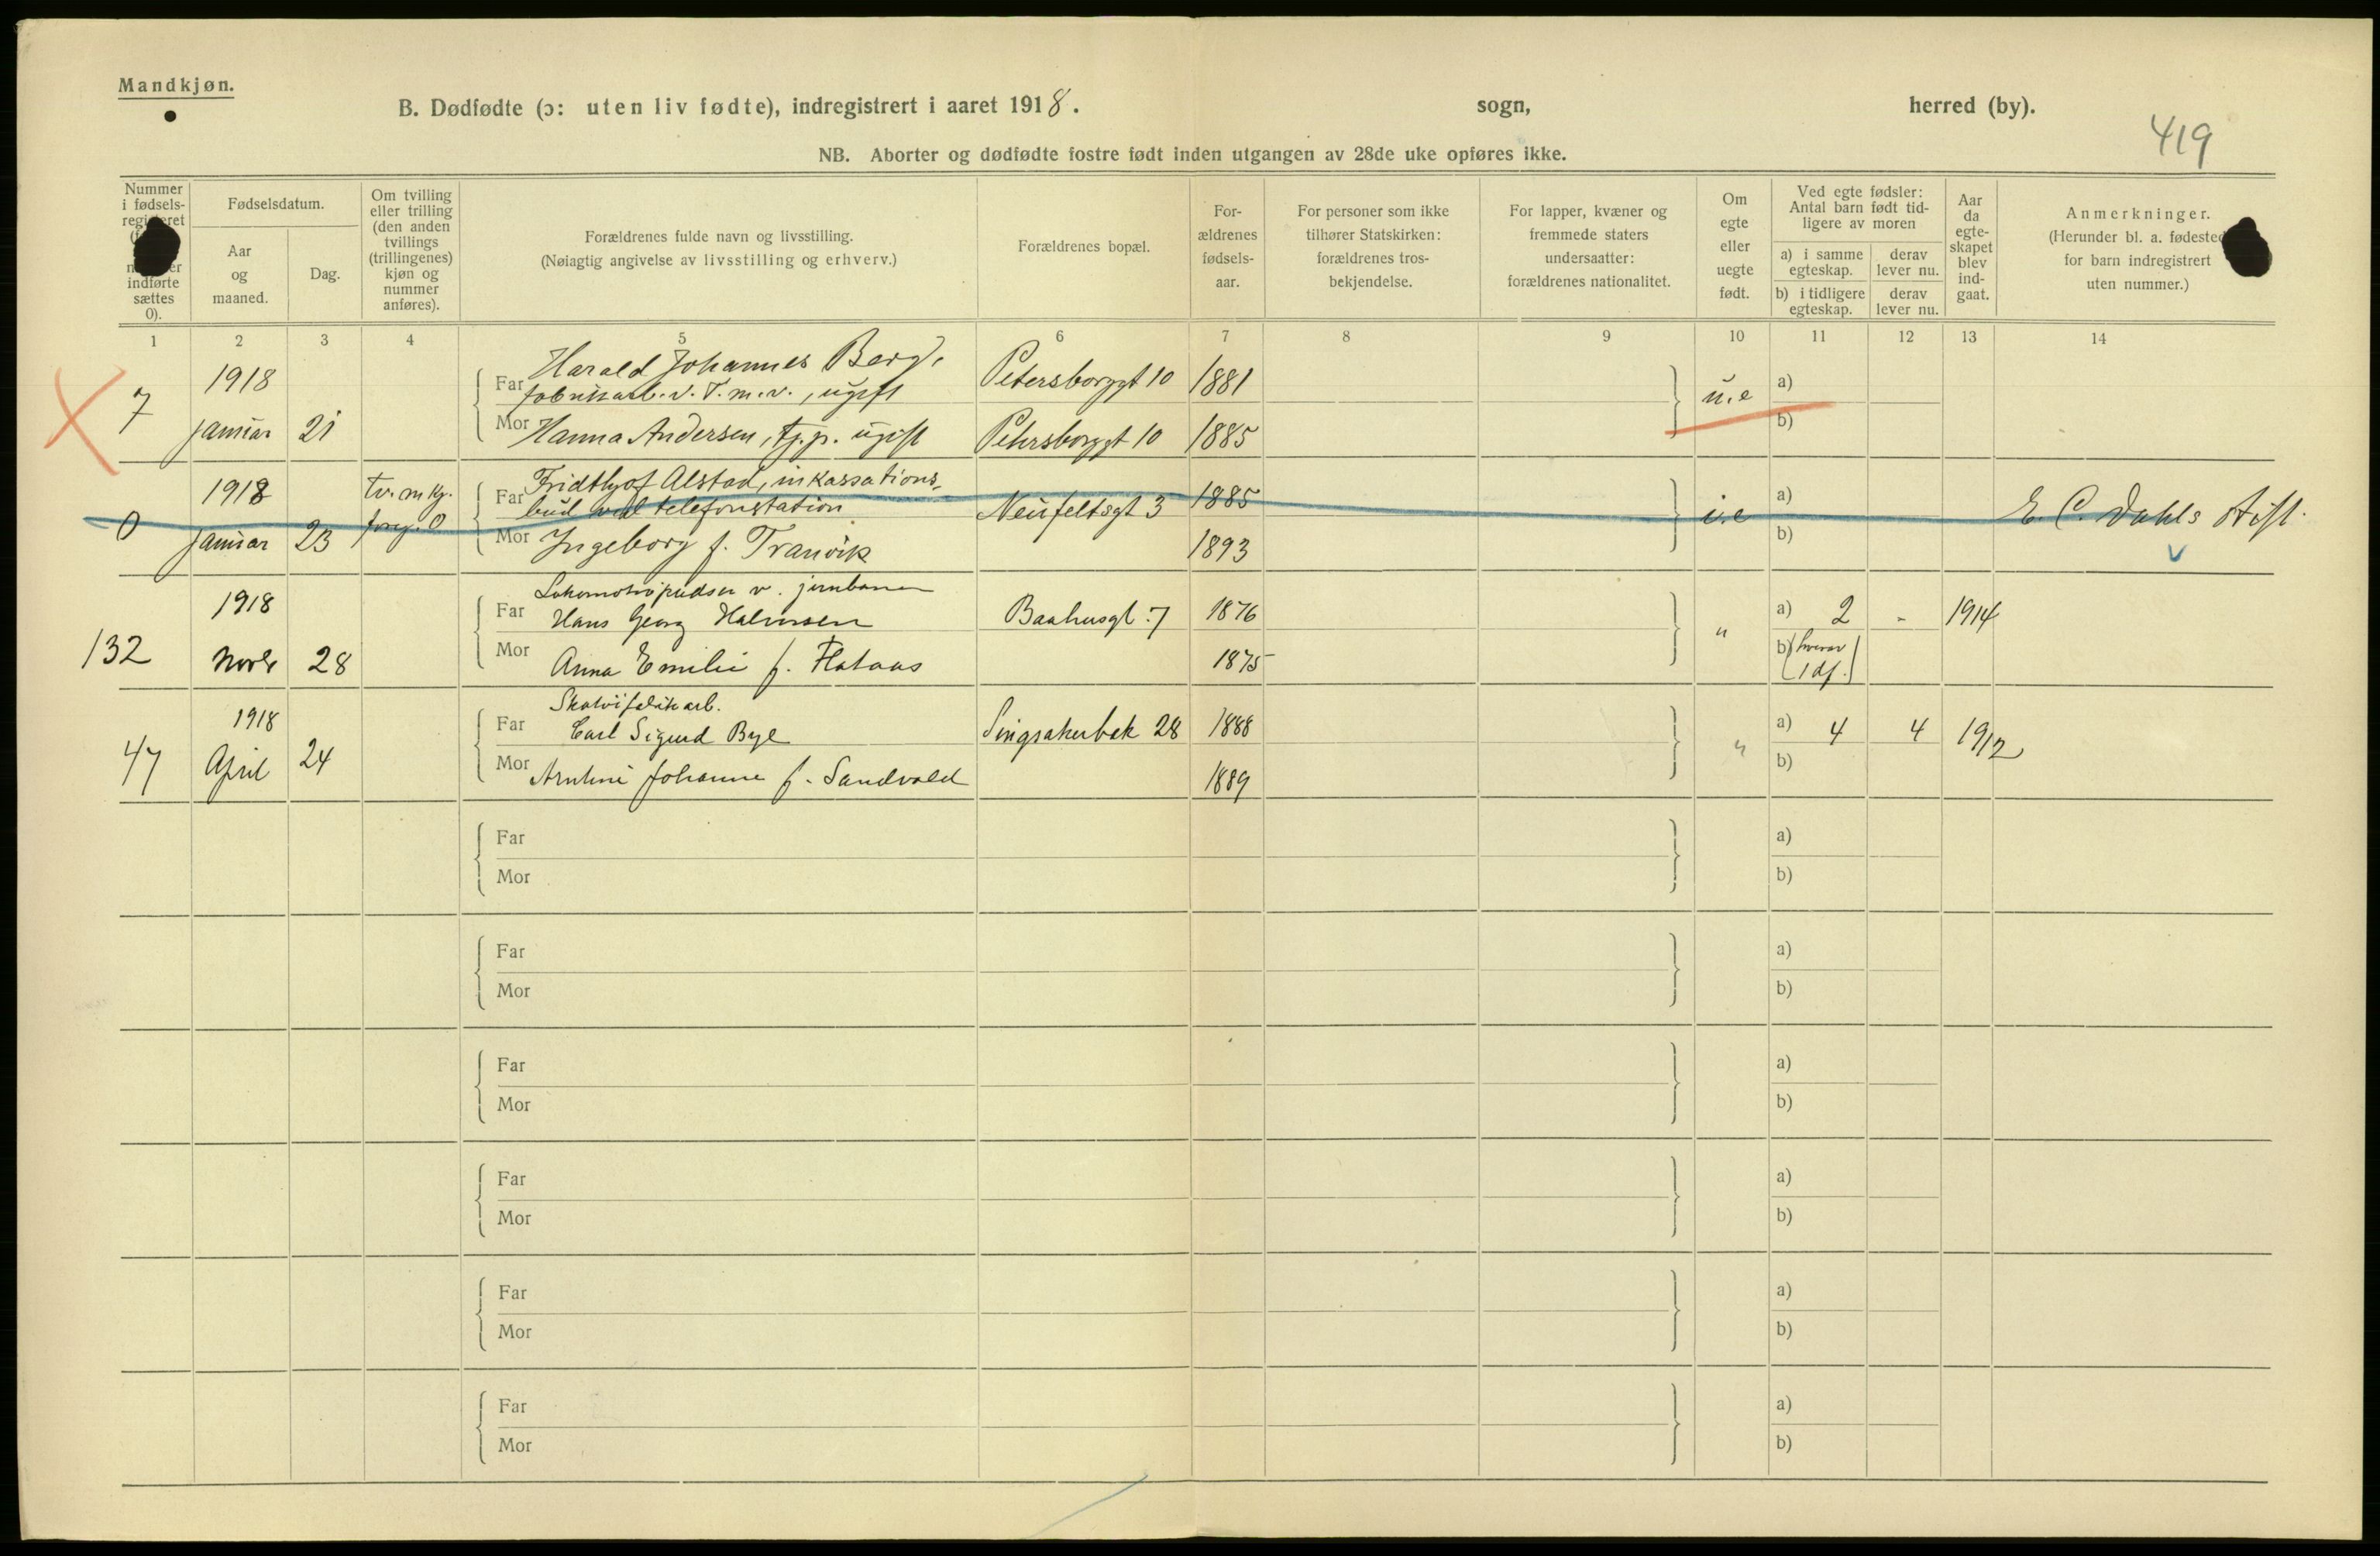 Mandkjøn.
B. Dødfødte (ɔ: uten liv fødte), indregistrert i aaret 1918. sogn, herred (by).
419
NB. Aborter og dødfødte fostre født inden utgangen av 28de uke opføres ikke.
Nummer
i fødsels-
registeret
indførte
sættes
0).
Fødselsdatum.
Aar
og
maaned.
Dag.
Om tvilling
eller trilling
(den anden
tvillings
(trillingenes)
kjøn og
nummer
anføres).
Forældrenes fulde navn og livsstilling.
(Nøiagtig angivelse av livsstilling og erhverv.)
Forældrenes bopæl.
For-
ældrenes
fødsels-
aar.
For personer som ikke
tilhører Statskirken:
forældrenes tros-
bekjendelse.
For lapper, kvæner og
fremmede staters
undersaatter:
forældrenes nationalitet.
Om
egte
eller
uegte
født.
Ved egte fødsler:
Antal barn født tid-
ligere av moren
a) i samme
egteskap.
derav
lever nu.
b) i tidligere
egteskap.
derav
lever nu.
Aar
da
egte-
skapet
blev
ind-
gaat.
Anmerkninger.
(Herunder bl. a. fødested
for barn indregistrert
uten nummer.)
1 2 3 4 5 6 7 8 9 10 11 12 13 14
7
1918
januar 21
Far Harald Johannes Berg,
fabrikarb. v. T.m.v., ugift
Petersborggt 10 1881
Mor Hanna Andersen, tj.p. ugift
Petersborggt 10 1885
u.e
a)
b)
0
1918
januar 23
tv. m kj.
foreg. 0
Far Fridthjof Alstad, inkassations-
bud ved telefonstation
Neufeltsgt 3 1885
Mor Ingeborg f. Tranvik
1893
i.e
a)
b)
E. C. Dahls stift.
132
1918
Novbr 28
Lokomotivpudser v. jernbanen
Far Hans Georg Halvorsen
Baahusgt. 7 1876
Mor Anna Emilie f. Flataas
1875
"
a) 2 - 1914
b) (hvorav
1 df.)
47
1918
April 24
Skotøifabrikarb.
Far Carl Sigurd Bye
Singsakerbak 28 1888
Mor Arntine Johanne f. Sandvold
1889
"
a) 4 4 1912
b)
Far
Mor
a)
b)
Far
Mor
a)
b)
Far
Mor
a)
b)
Far
Mor
a)
b)
Far
Mor
a)
b)
Far
Mor
a)
b)